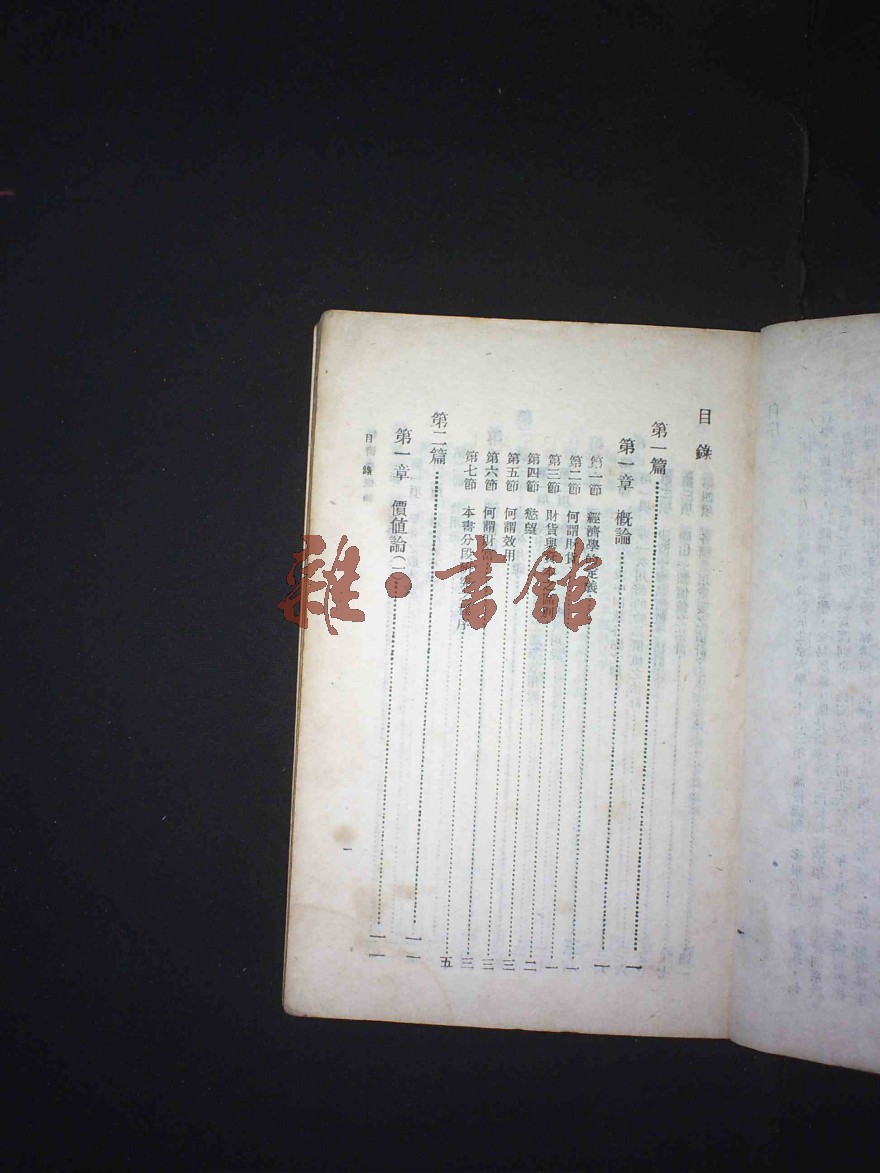 目錄
第一篇……一
第一章 概論……一
第一節 經濟學的定義……一
第二節 何謂財貨……一
第三節 財貨與……別……一
第四節 慾望……二
第五節 何謂效用……三
第六節 何謂財富……三
第七節 本書分段……序……五
第二篇……一一
第一章 價值論(一)……一一
目錄
一
雜·書館